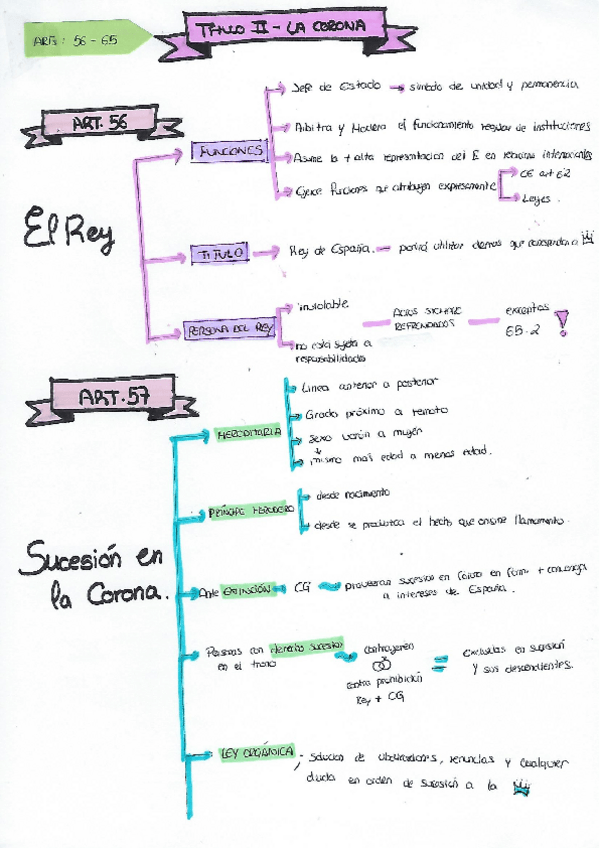 ART: 56 - 65
TITULO II - LA CORONA
ART. 56
El Rey
FUNCIONES
Jefe de Estado → simbolo de unidad y permanencia
Arbitra y Modera el funcionamiento regular de instituciones
Asume la + alta representacion del E en relaciones internacionales
Ejerce funciones que atribuyen expresamente
CE art 62
Leyes.
TITULO
Rey de España. — podrá utilizar demas que correspondan a
PERSONA DEL REY
inviolable
no está sujeta a
responsabilidada
ACTOS SIEMPRE
REFRENDADOS
exceptos
65.2 !
ART. 57
Sucesión en
la Corona.
HEREDITARIA
Linea anterior a posterior
Grado próximo a remoto
Sexo varón a mujer
mismo mas edad a menos edad.
PRÍNCIPE HEREDERO
desde nacimiento
desde se produzca el hecho que origine llamamiento.
Ante EXTINCIÓN → CG → proveeran sucesion en forma + convenga
a intereses de España.
Personas con derecho sucesion
en el trono
contrajeren
contra prohibición
Rey + CG
=
excluidas en sucesión
y sus descendientes.
LEY ORGÁNICA
; solucion de abdicaciones, renuncias y cualquier
duda en orden de sucesión a la